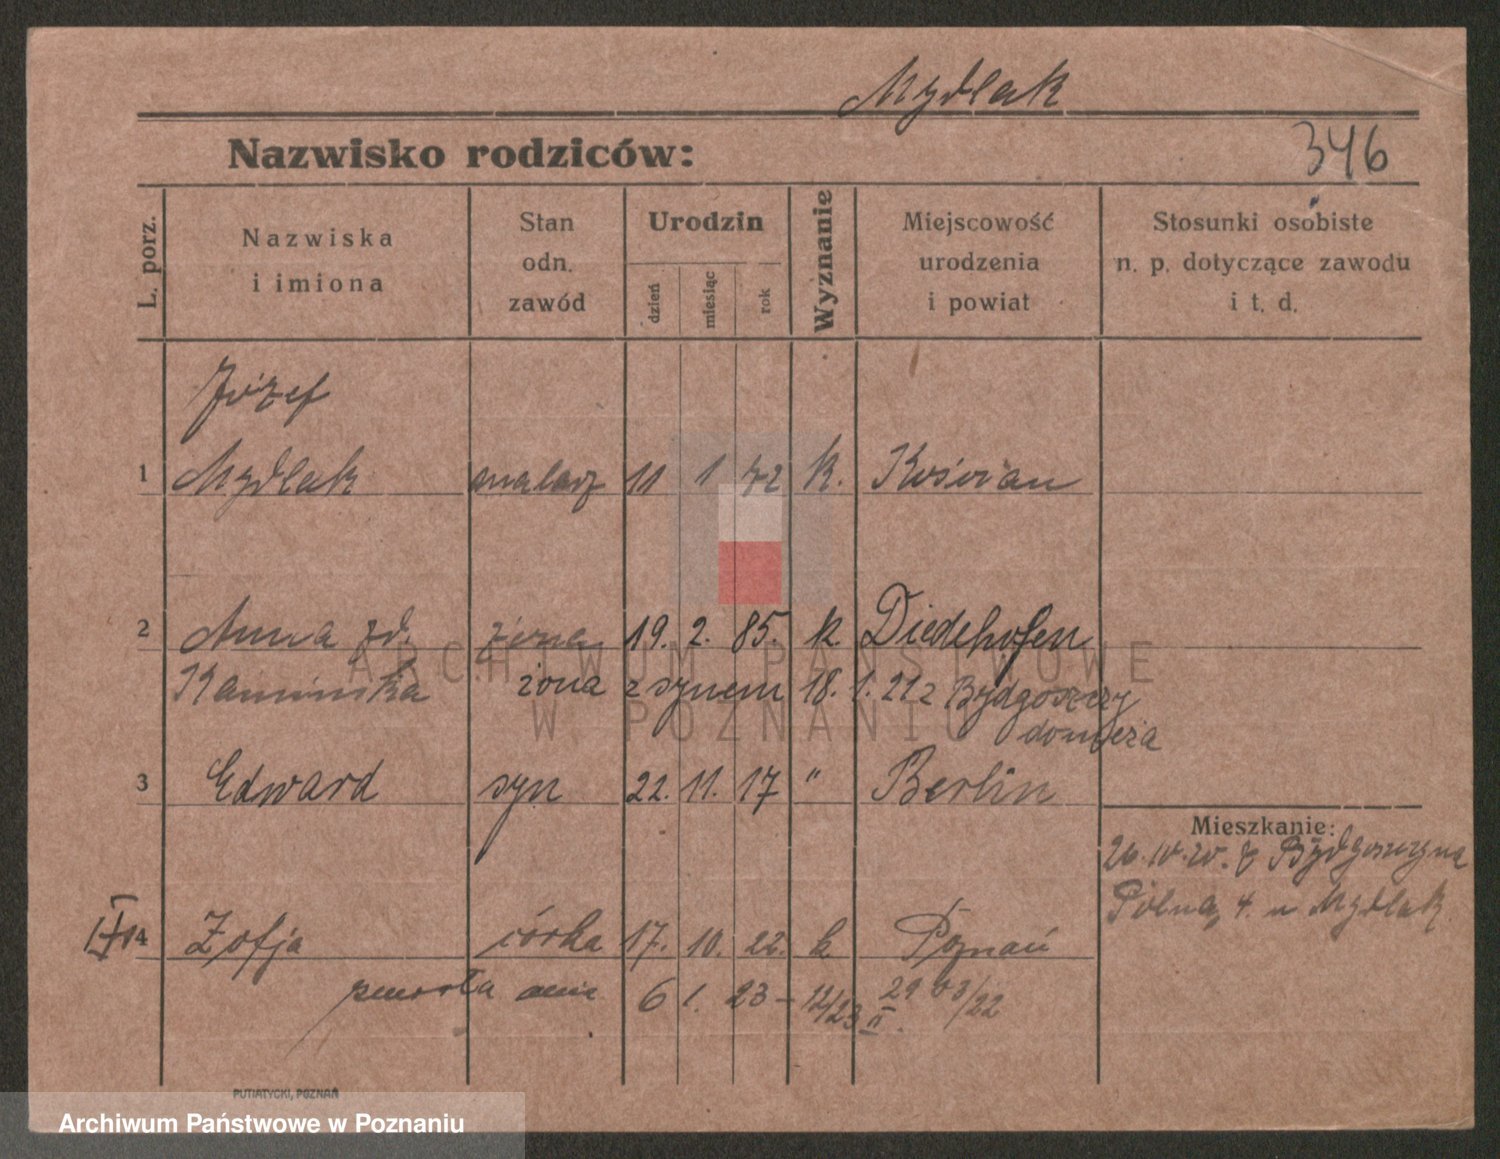 Mydlak
Nazwisko rodziców:
346
L. porz.
Nazwiska
i imiona
Stan
odn.
zawód
Urodzin
dzień
miesiąc
rok
Wyznanie
Miejscowość
urodzenia
i powiat
Stosunki osobiste
n. p. dotyczące zawodu
i t. d.
Józef
1 Mydlak malarz 11 1 72 k. Kościan
2 Anna zd. żona 19. 2. 85. k. Diedehofen
Kaminska żona z synem 18. 1. 21 z Bydgoszczy
do męża
3 Edward syn 22. 11. 17 " Berlin
Mieszkanie:
26. IV. 20. z Bydgoszczy na
Polną 4. u Mydlak
4 Zofja córka 17. 10. 22. k. Poznań
zmarła dnia 6 1. 23 - 12/23 II. 29 63/22
PUTIATYCKI, POZNAŃ
ARCHIWUM PAŃSTWOWE
W POZNANIU
Archiwum Państwowe w Poznaniu